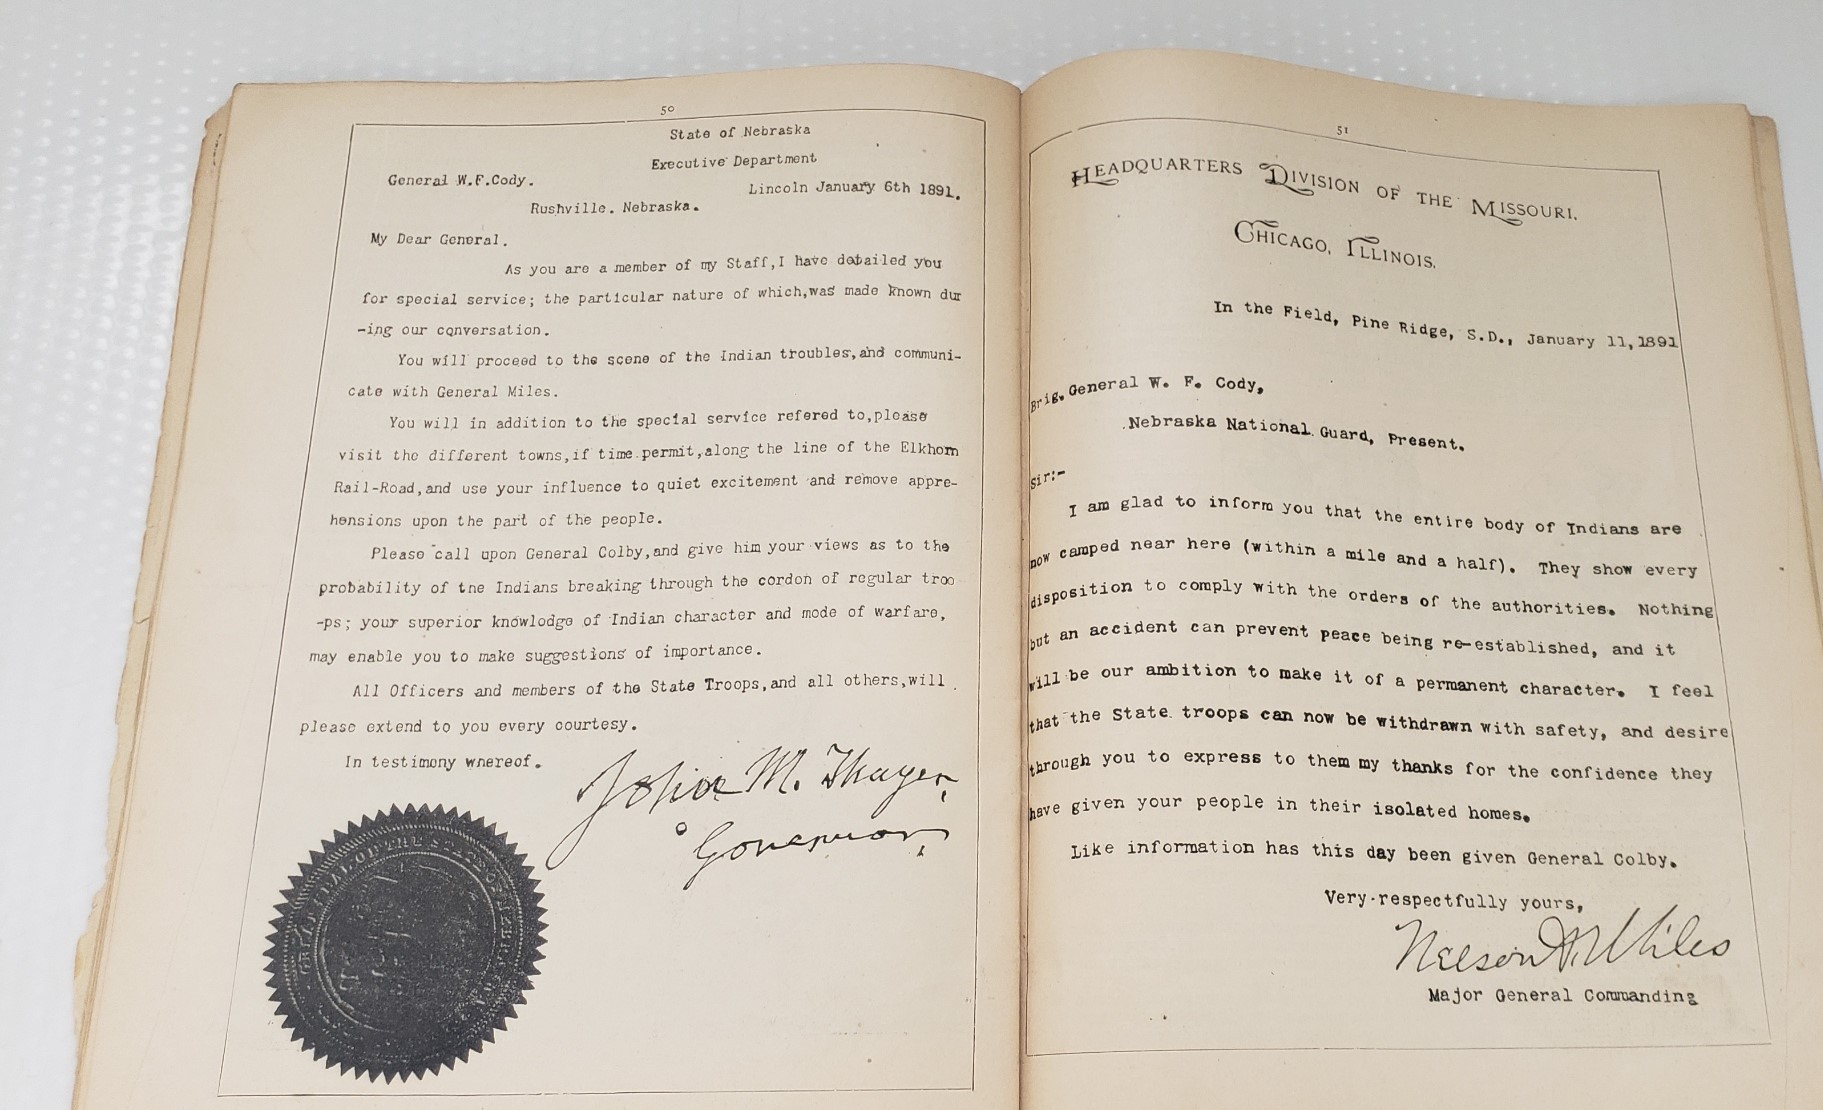 50
State of Nebraska
Executive Department
General W.F.Cody.
Lincoln January 6th 1891.
Rushville. Nebraska.
My Dear General.
As you are a member of my Staff,I have detailed you
for special service; the particular nature of which,was made known dur
-ing our conversation.
You will proceed to the scene of the Indian troubles,and communi-
cate with General Miles.
You will in addition to the special service refered to,please
visit the different towns,if time permit,along the line of the Elkhorn
Rail-Road,and use your influence to quiet excitement and remove appre-
hensions upon the part of the people.
Please call upon General Colby,and give him your views as to the
probability of the Indians breaking through the cordon of regular troo
-ps; your superior knowledge of Indian character and mode of warfare,
may enable you to make suggestions of importance.
All Officers and members of the State Troops,and all others,will
please extend to you every courtesy.
In testimony whereof.
John M. Thayer,
Governor.
GREAT SEAL OF THE STATE OF NEBRASKA
51
HEADQUARTERS DIVISION OF THE MISSOURI.
CHICAGO, ILLINOIS.
In the Field, Pine Ridge, S.D., January 11,1891
Brig. General W. F. Cody,
Nebraska National Guard, Present.
Sir:-
I am glad to inform you that the entire body of Indians are
now camped near here (within a mile and a half). They show every
disposition to comply with the orders of the authorities. Nothing
but an accident can prevent peace being re-established, and it
will be our ambition to make it of a permanent character. I feel
that the State troops can now be withdrawn with safety, and desire
through you to express to them my thanks for the confidence they
have given your people in their isolated homes.
Like information has this day been given General Colby.
Very respectfully yours,
Nelson A. Miles
Major General Commanding